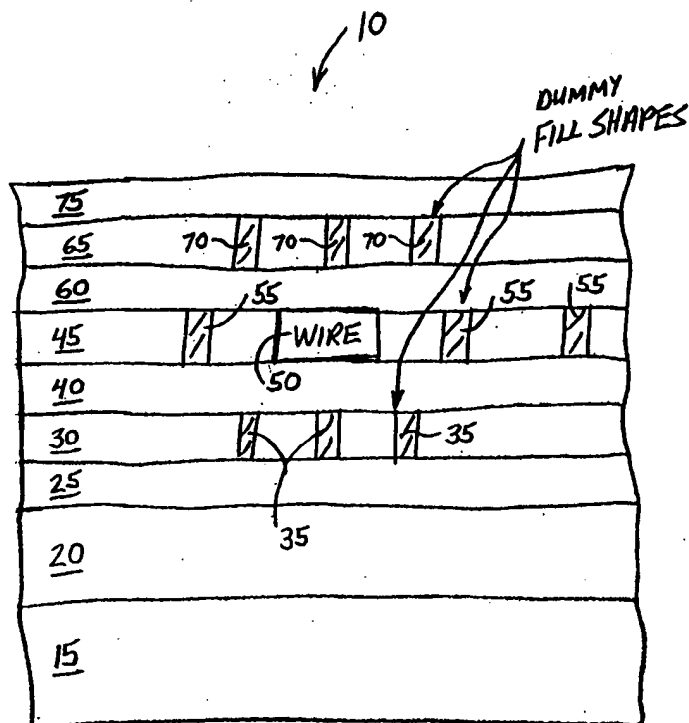 10
DUMMY
FILL SHAPES
75
65 70 70 70
60 55 55 55
45 WIRE
40 50
30 35
25
35
20
15